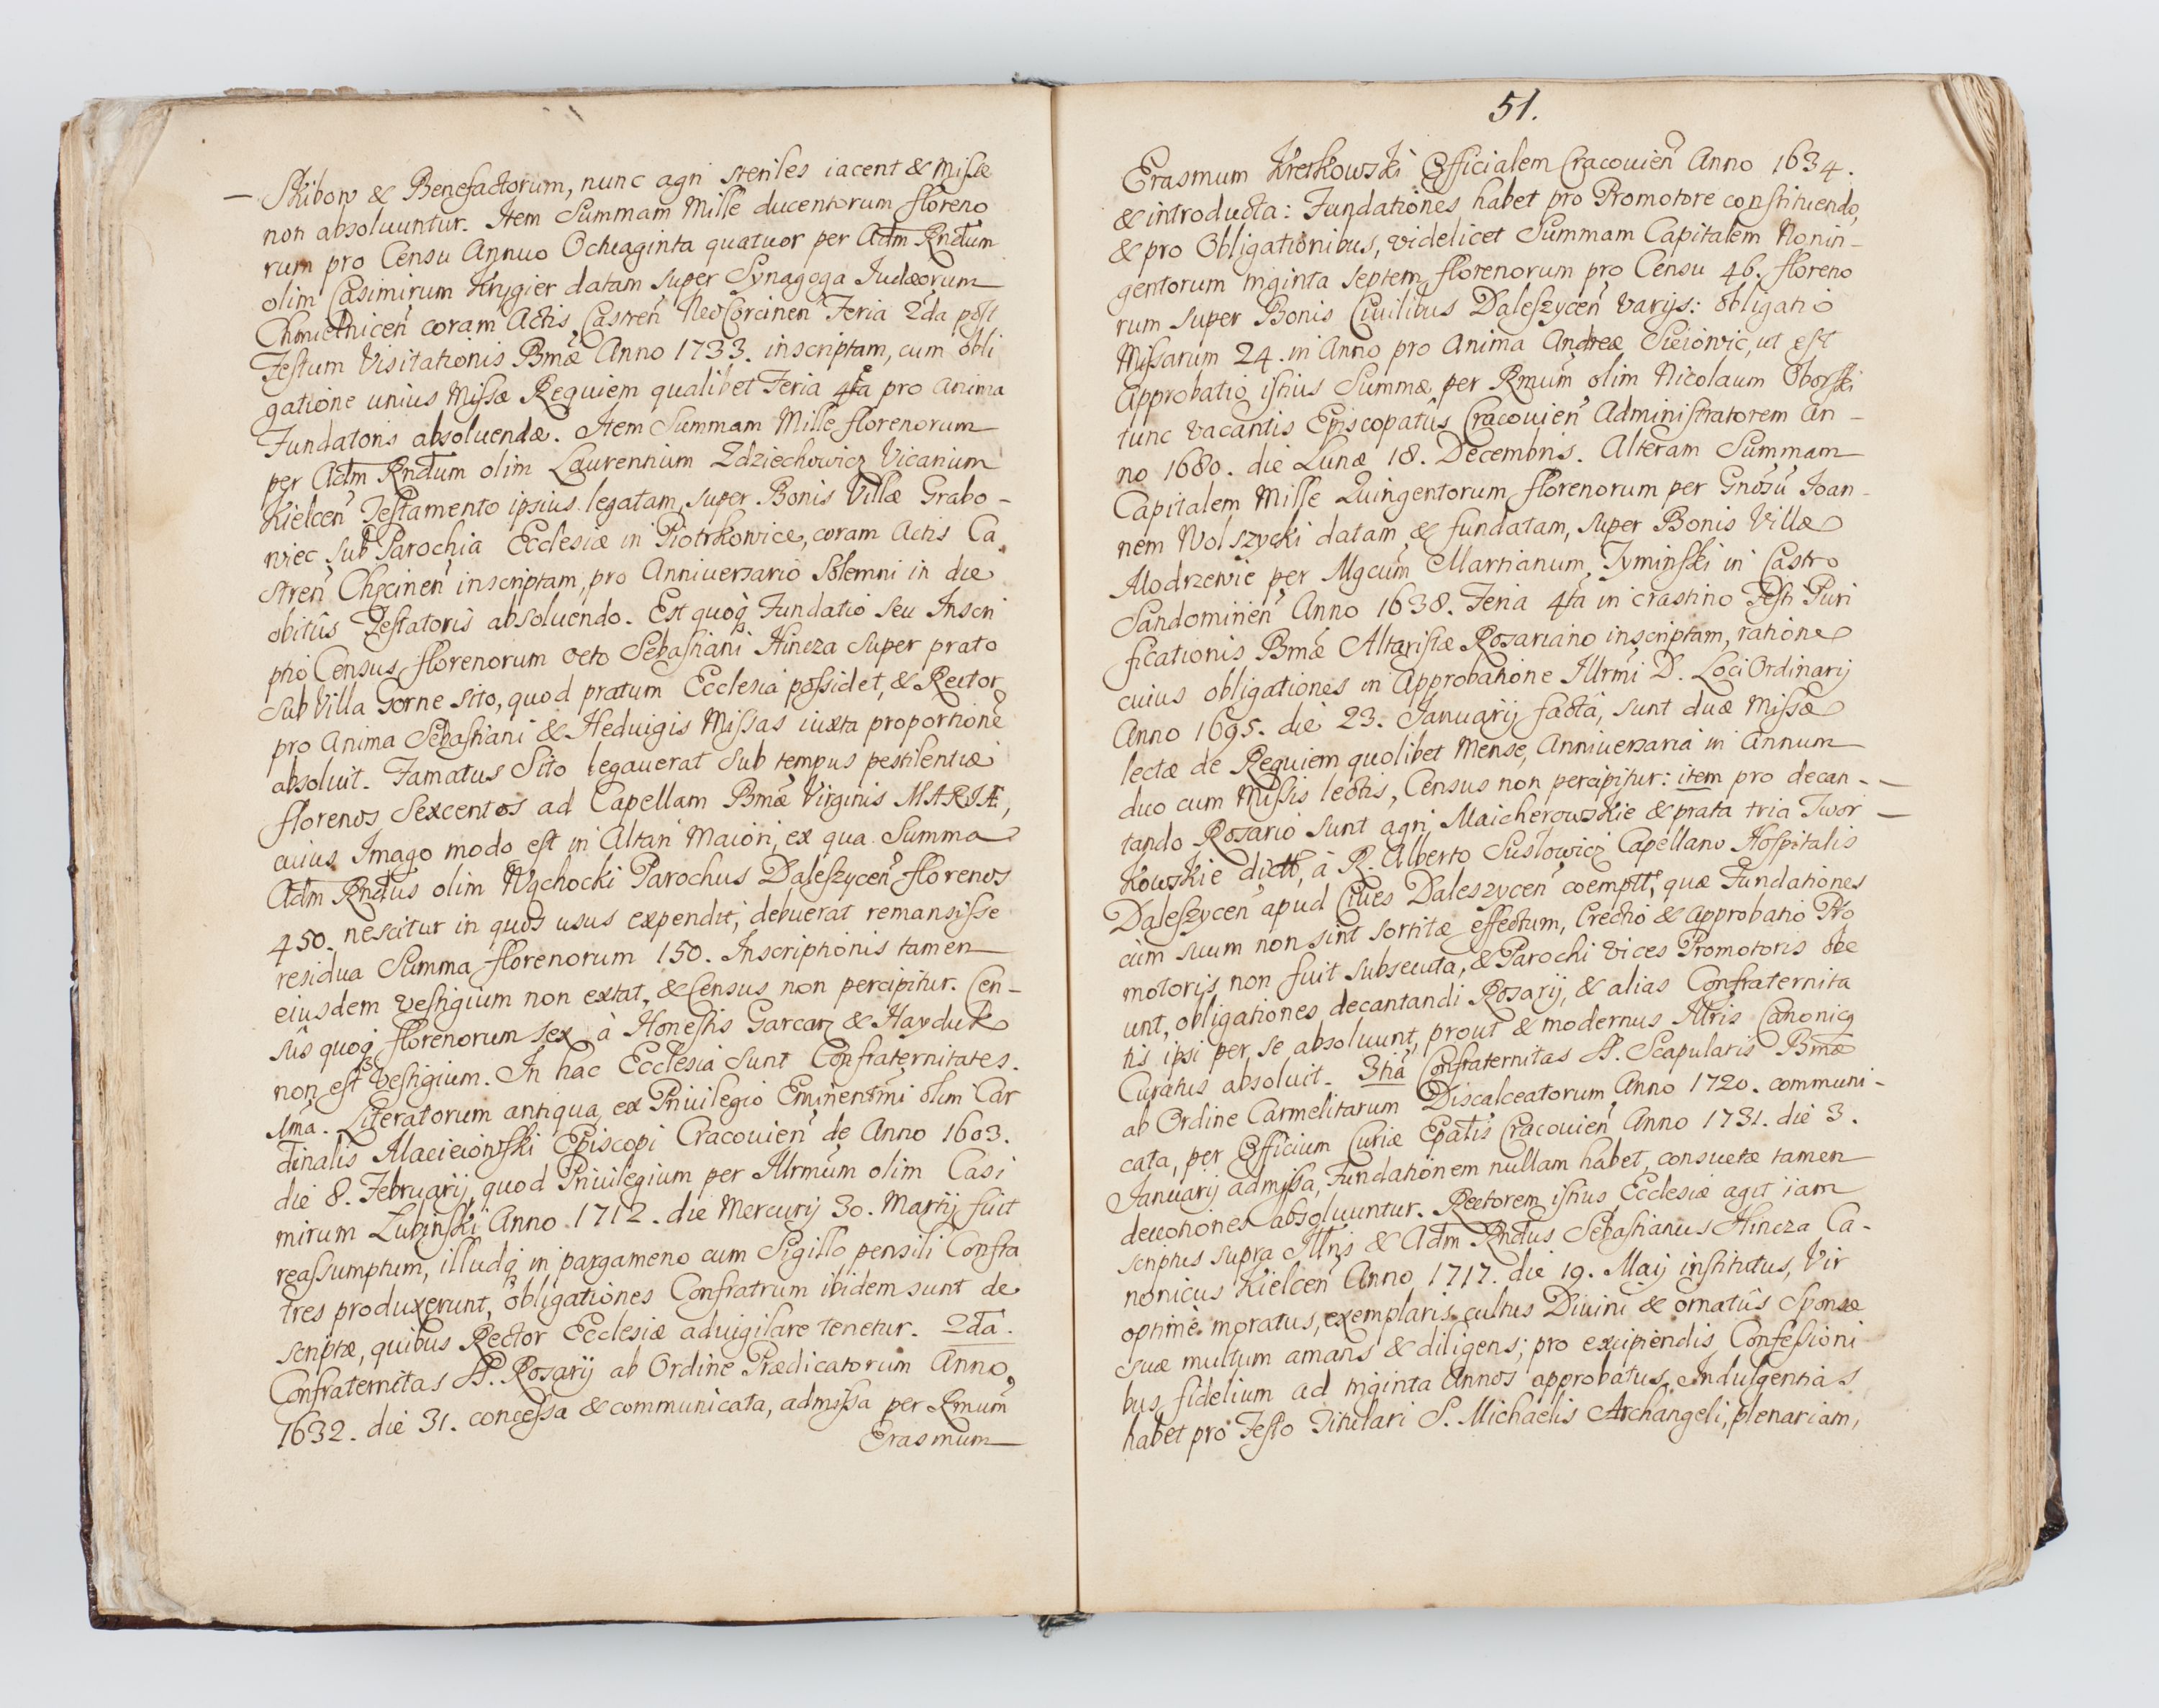 Skibow & Benefactorum, nunc agri steriles iacent & Missæ
non absoluuntur. Item Summam Mille ducentorum floreno
rum pro Censu Annuo Octuaginta quatuor per Adm Rndum
olim Casimirum Krygier datam super Synagoga Iudæorum
Chmielnicen coram Actis Castren NeoCorcinen Feria 2da post
Festum Visitationis Bmæ Anno 1733. inscriptam, cum obli
gatione unius Missæ Requiem qualibet Feria 4ta pro anima
Fundatoris absoluendæ. Item Summam Mille florenorum
per Adm Rndum olim Laurentium Zdziechowicz Vicarium
Kielcen Testamento ipsius legatam, super Bonis Villæ Grabo-
wiec sub Parochia Ecclesiæ in Piotrkowice, coram Actis Ca
stren Chęcinen inscriptam, pro Anniuersario Solemni in die
obitûs Testatoris absoluendo. Est quoq Fundatio seu Inscri
ptio Census florenorum octo Sebastiani Hincza super prato
sub Villa Gorne sito, quod pratum Ecclesia possidet, & Rector
pro Anima Sebastiani & Heduigis Missas iuxta proportione
absoluit. Famatus Sito legauerat sub tempus pestilentiæ
florenos Sexcentos ad Capellam Bmæ Virginis MARIÆ,
cuius Imago modo est in Altari Maiori, ex qua Summa
Adm Rndus olim Wąchocki Parochus Daleszycen florenos
450. nescitur in quos usus expendit, debuerat remansisse
residua Summa florenorum 150. Inscriptionis tamen
eiusdem vestigium non extat, & Census non percipitur. Cen-
sûs quoq florenorum sex à Honestis Garcarz & Hayduk
non est Vestigium. In hac Ecclesia sunt Confraternitates.
1ma. Literatorum antiqua, ex Priuilegio Eminentmi olim Car
dinalis Macieiowski Episcopi Cracouien de Anno 1603.
die 8. Februarij, quod Priuilegium per Illrmum olim Casi
mirum Lubinski Anno 1712. die Mercurij 30. Martij fuit
reassumptum, illudq in pargameno cum Sigillo pensili Confra
tres produxerunt, obligationes Confratrum ibidem sunt de
scriptæ, quibus Rector Ecclesiæ aduigilare tenetur. 2da.
Confraternitas SS. Rosarij ab Ordine Prædicatorum Anno
1632. die 31. concessa & communicata, admissa per Rmum
Erasmum
51.
Erasmum Kretkowski Officialem Cracouien Anno 1634.
& introducta: Fundationes habet pro Promotore constituendo,
& pro Obligationibus, videlicet Summam Capitalem Nonin-
gentorum triginta septem florenorum pro Censu 46. floreno
rum super Bonis Ciuilibus Daleszycen Varijs: obligatio
Missarum 24. in Anno pro Anima Andreæ Sieiowic, ut est
Approbatio istius Summæ per Rmum olim Nicolaum Oborski
tunc Vacantis Episcopatûs Cracouien Administratorem An-
no 1680. die Lunæ 18. Decembris. Alteram Summam
Capitalem Mille Quingentorum florenorum per Gnosu Ioan-
nem Wolszycki datam & fundatam, super Bonis Villæ
Modrzewie per Mgcum Martianum Tyminski in Castro
Sandomirien Anno 1638. Feria 4ta in crastino Festi Puri
ficationis Bmæ Altaristæ Rosariano inscriptam, ratione
cuius obligationes in Approbatione Illrmi D. Loci Ordinarij
Anno 1695. die 23. Ianuarij facta, sunt duæ Missæ
lectæ de Requiem quolibet Mense, Anniuersaria in Annum
duo cum Missis lectis, Census non percipitur: item pro decan-
tando Rosario sunt agri Maicherowskie & prata tria Twor
kowskie dictt, à R. Alberto Susłowicz Capellano Hospitalis
Daleszycen apud Ciues Daleszycen coemptt, quæ Fundationes
cùm suum non sint sortitæ effectum, Erectio & Approbatio Pro
motoris non fuit subsecuta, & Parochi vices Promotoris obe
unt, obligationes decantandi Rosarij, & alias Confraternita
tis ipsi per se absoluunt, prout & modernus Illris Canonicq
Curatus absoluit. 3tia Confraternitas SS. Scapularis Bmæ
ab Ordine Carmelitarum Discalceatorum Anno 1720. communi-
cata, per Officium Curiæ Epatis Cracouien Anno 1731. die 3.
Ianuarij admissa, Fundationem nullam habet, consuetæ tamen
deuotiones absoluuntur. Rectorem istius Ecclesiæ agit iam
scriptus supra Illris & Adm Rndus Sebastianus Hincza Ca-
nonicus Kielcen Anno 1717. die 19. Maij institutus, Vir
optimè moratus, exemplaris, cultus Diuini & ornatûs Sponsæ
suæ multum amans & diligens; pro excipiendis Confessioni
bus fidelium ad triginta Annos approbatus. Indulgentias
habet pro Festo Titulari S. Michaëlis Archangeli, plenariam,